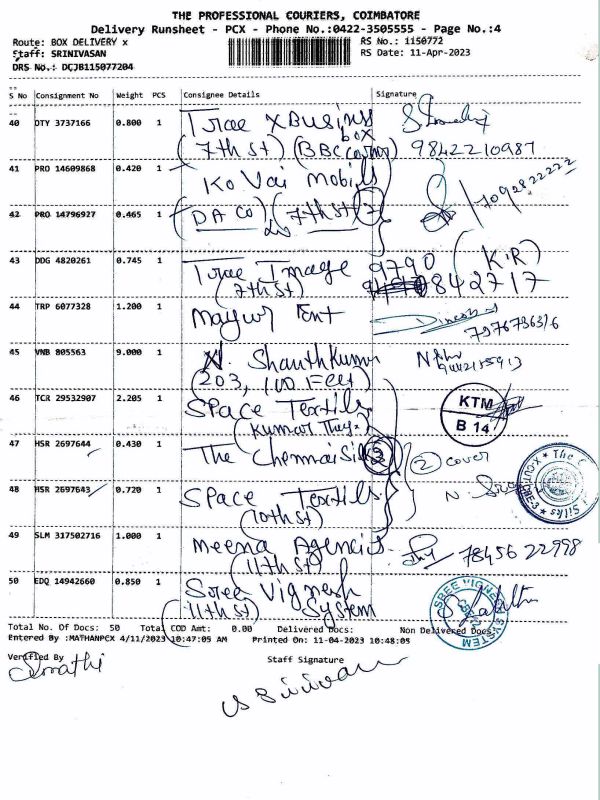 THE PROFESSIONAL COURIERS, COIMBATORE
Delivery Runsheet - PCX - Phone No.:0422-3505555 - Page No.:4
Route: BOX DELIVERY x RS No.: 1150772
Staff: SRINIVASAN RS Date: 11-Apr-2023
DRS No.: DCJB115077204
S No Consignment No Weight PCS Consignee Details Signature
40 DTY 3737166 0.800 1 Trae x Business
box
(7th st) (BBC 9842210987
41 PRO 14609868 0.420 1 Kovai Mobils
7092822222
42 PRO 14796927 0.465 1 (DA Co) (7th st) 2
43 DDG 4820261 0.745 1 Trae Image 9790 (K.R)
(7th st) 842717
44 TRP 6077328 1.200 1 Mayur Tent Dinesh
45 VNB 805563 9.000 1 N. Shanth Kumar
(203, 100 Feet)
46 TCR 29532907 2.205 1 Space Textils KTM
(Kumar B 14
47 HSR 2697644 0.430 1 The Chennai Silks 2 cover
48 HSR 2697643 0.720 1 Space Textils
(10th st)
49 SLM 317502716 1.000 1 Meena Agencies 7845622998
(11th st)
50 EDQ 14942660 0.850 1 Sree Vignesh
(11th st) System
Total No. Of Docs: 50 Total COD Amt: 0.00 Delivered Docs: Non Delivered Docs:
Entered By :MATHANPCX 4/11/2023 10:47:05 AM Printed On: 11-04-2023 10:48:05
Verified By Staff Signature